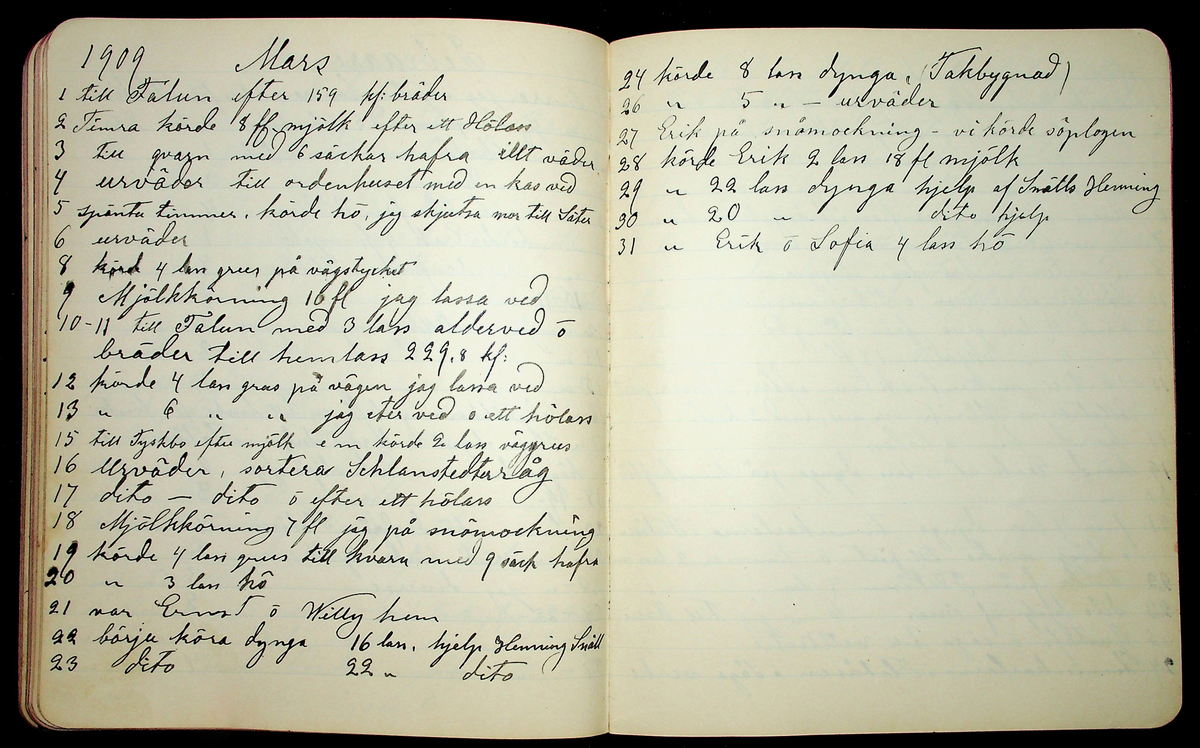 1909 Mars
1 till Falun efter 159 kf: bräder
2 Timra körde 8 ff mjölk efter ett Hölass
3 till qvarn med 6 säckar hafra illt väder
4 urväder till ordenhuset med en kas ved
5 spänta timmer, körde hö, jag skjutsa mor till Säter
6 urväder
8 körde 4 lass grus på vägstycket
9 Mjölkkörning 16 fl jag lassa ved
10-11 till Falun med 3 lass alderved ō
bräder till hemlass 229,8 kf:
12 körde 4 lass grus på vägen jag lassa ved
13 " 6 " " jag eter ved o ett hölass
15 till Tyskbo efter mjölk e m körde 2 lass väggrus
16 Urväder, sortera Schlanstedterråg
17 dito — dito ō efter ett hölass
18 Mjölkkörning 7 fl jag på snömockning
19 körde 4 lass grus till kvarn med 9 säck hafra
20 " 3 lass hö
21 var Ernst ō Willy hem
22 börja köra dynga 16 lass, hjelp Henning Snäll
23 dito 22 " dito
24 körde 8 lass dynga, (Takbygnad)
26 " 5 " — urväder
27 Erik på snömockning - vi körde söplogen
28 körde Erik 2 lass 18 fl mjölk
29 " 22 lass dynga hjelp af Snälls Henning
30 " 20 " dito hjelp
31 " Erik ō Sofia 4 lass hö